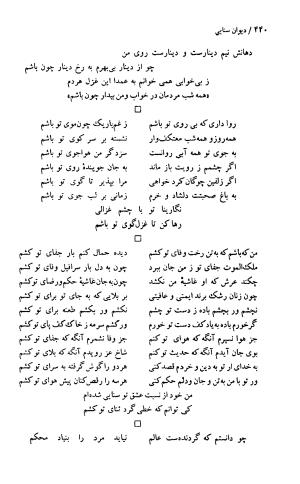 ۴۴۰ / دیوان سنایی
دهانش نیم دینارست و دینارست روی من
چو از دینار بی‌بهرم به رخ دینار چون باشم
ز بی‌خوابی همی خوانم به عمدا این غزل هردم
«همه شب مردمان در خواب ومن بیدار چون باشم»
وقاری که بی روی تو باشم ز غم باریک چون موی تو باشم
همه روز و همه شب معتکف‌وار نشسته بر سر کوی تو باشم
به جوی تو همه آبی روانست سزد گر من هواجوی تو باشم
اگر چشمم ز رویت باز ماند به جان جویندهٔ روی تو باشم
اگر زلفین چوگان کرد خواهی مرا بپذیر تا گوی تو باشم
به باغ صحبتت دلشاد و خرم زمانی بر لب جوی تو باشم
نگارینا تو با چشم غزالی
رها کن تا غزل‌گوی تو باشم
من که باشم که به تن رخت وفای تو کشم دیده حمال کنم بار جفای تو کشم
ملک‌الموت جفای تو ز من جان ببرد چون به دل بار سرافیل وفای تو کشم
چکند عرش که او غاشیهٔ من نکشد چون به جان غاشیهٔ حکم و رضای تو کشم
چون زنان رشک برند ایمنی و عافیتی بر بلایی که به جای تو برای تو کشم
نچشم ور بچشم باده ز دست تو چشم نکشم ور بکشم طعنه برای تو کشم
گر خورم باده به یاد کف دست تو خورم ور کشم سرمه ز خاک کف پای تو کشم
جز هوا نسپرم آنگه که هوای تو کنم جز وفا نشمرم آنگه که جفای تو کشم
بوی جان آیدم آنگه که حدیث تو کنم شاخ عز رویدم آنگه که بلای تو کشم
به خدای ار تو به دین و خردم قصد کنی هردو را گوش گرفته به سرای تو کشم
ور تو با من به تن و جان و دلم حکم کنی هرسه را رقص‌کنان پیش هوای تو کشم
من خود از نسبت عشق تو سنایی شده‌ام
کی توانم که خطی گرد ثنای تو کشم
چو دانستم که گردنده‌ست عالم نیاید مرد را بنیاد محکم